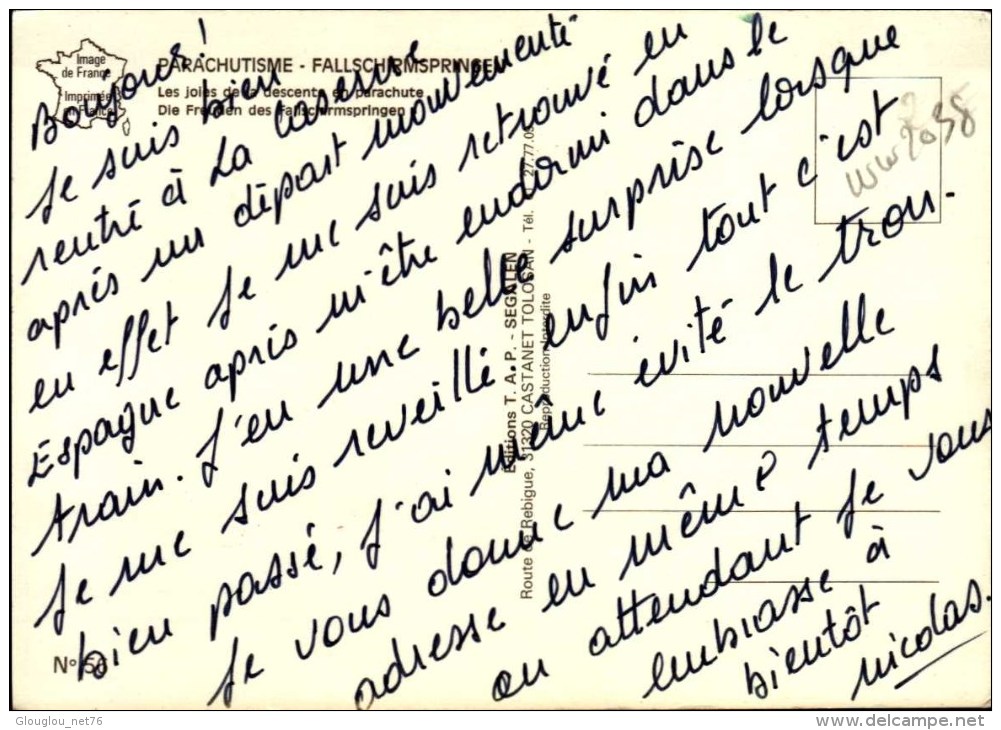 Image
de France
Imprimée
en France
PARACHUTISME - FALLSCHIRMSPRINGEN
Les joies de la descente en parachute
Die Freuden des Fallschirmspringen
Bonjour!
Je suis bien
rentré à la caserne
après un départ mouvementé
en effet je me suis retrouvé en
Espagne après m'être endormi dans le
train. J'en une belle surprise lorsque
je me suis reveillé, enfin tout c'est
bien passé, j'ai même évité le trou-
Je vous donne ma nouvelle
adresse en même temps
en attendant je vous
embrasse à
bientôt
nicolas.
Editions T. A. P. - SEGALEN
Route de Rebigue, 31320 CASTANET TOLOSAN - Tél. 27.77.09
Reproduction interdite
N° 56
Glouglou_net76
www.delcampe.net